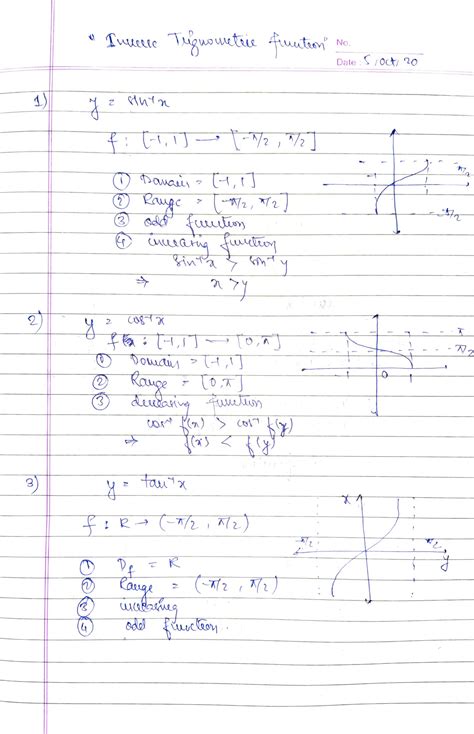 " Inverse Trignometric function"
No.
Date : 5/Oct/20
1) y = sin⁻¹x
f : [-1, 1] → [-π/2, π/2]
① Domain = [-1, 1]
② Range = [-π/2, π/2]
③ odd function
④ increasing function
sin⁻¹x > sin⁻¹y
⇒ x > y
π/2
-1
1
-π/2
2) y = cos⁻¹x
f : [-1, 1] → [0, π]
① Domain = [-1, 1]
② Range = [0, π]
③ decreasing function
cos⁻¹ f(x) > cos⁻¹ f(y)
⇒ f(x) < f(y)
π
π/2
-1
0
1
3) y = tan⁻¹x
f : R → (-π/2, π/2)
① D_f = R
② Range = (-π/2, π/2)
③ increasing
④ odd function.
x
-π/2
π/2
y